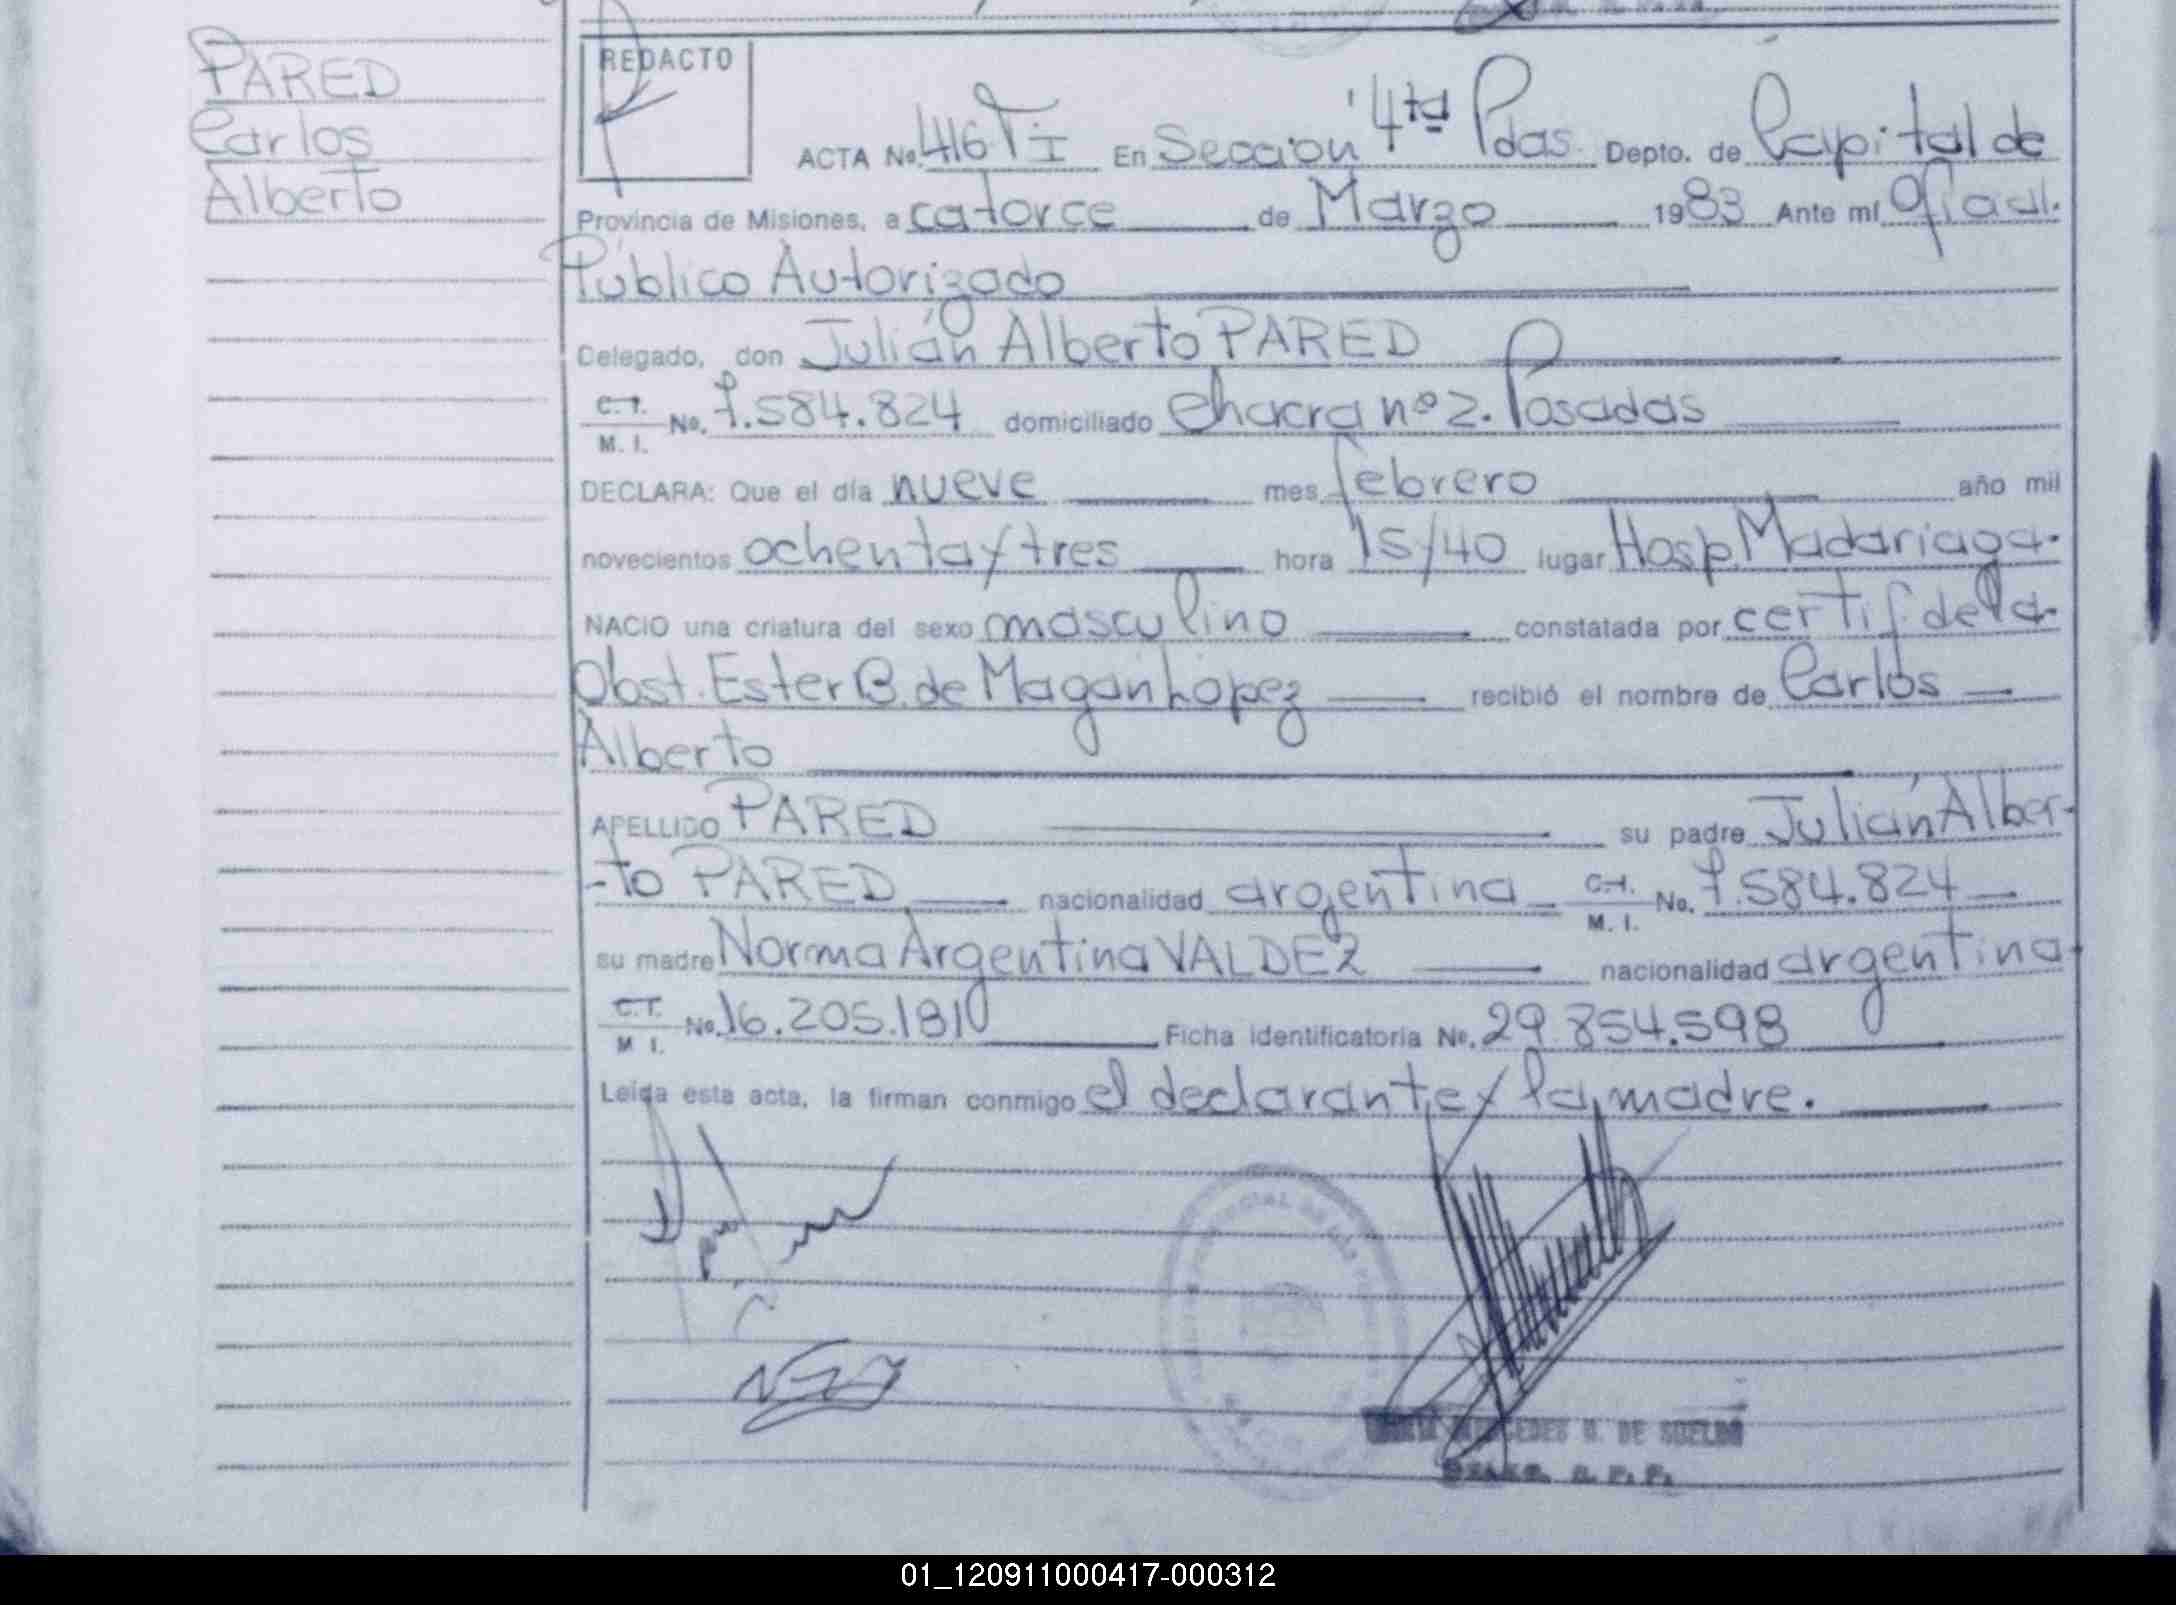 PARED
Carlos
Alberto
REDACTO
ACTA No. 416 TI En Sección 4ta Pdas. Depto. de Capital de
Provincia de Misiones, a catorce de Marzo 1983 Ante mí Oficial.
Público Autorizado
Delegado, don Julián Alberto PARED
C.I.
M. I. No. 7.584.824 domiciliado Chacra nº 2. Posadas
DECLARA: Que el día nueve mes febrero año mil
novecientos ochenta y tres hora 15/40 lugar Hosp. Madariaga.
NACIO una criatura del sexo masculino constatada por certif. de la
Obst. Ester B. de Magan Lopez recibió el nombre de Carlos
Alberto
APELLIDO PARED su padre Julián Alber-
-to PARED nacionalidad argentina C.I. M. I. No. 7.584.824
su madre Norma Argentina VALDEZ nacionalidad argentina
C.I. M. I. No. 16.205.181 Ficha identificatoria No. 29.854.598
Leída esta acta, la firman conmigo el declarante y la madre.
DE SOELDO
01_120911000417-000312